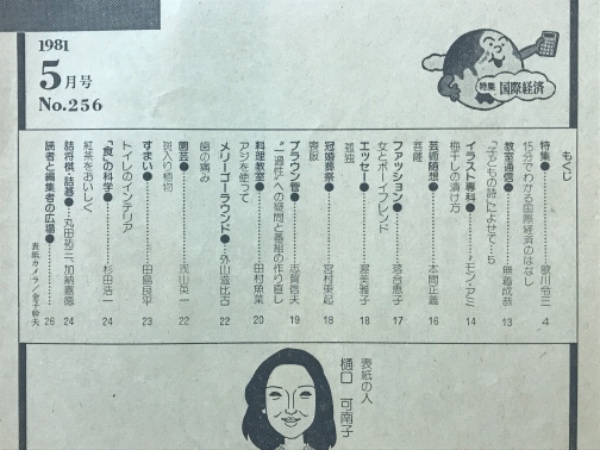 1981
5月号
No.256
特集 国際経済
もくじ
特集●…歌川令三 4
15分でわかる国際経済のはなし
教室通信●…無着成恭 13
「子どもの詩」によせて…5
イラスト専科●…モン・アミ 14
梅干しの漬け方
芸術随想●…本間正義 16
菩薩
ファッション●…落合恵子 17
女とボーイフレンド
エッセー●…渥美雅子 18
孤独
冠婚葬祭●…宮村東起 18
喪服
ブラウン管●…志賀信夫 19
“一過性”への疑問と番組の作り直し
料理教室●…田村魚菜 20
アジを使って
メリーゴーラウンド●…外山滋比古 22
歯の痛み
園芸●…浅山英一 22
斑入り植物
すまい●…田島良平 23
トイレのインテリア
「食」の科学●…杉田浩一 24
紅茶をおいしく
詰将棋・詰碁●…丸田祐三、加納嘉徳 24
読者と編集者の広場● 26
表紙カメラ／金子幹夫
表紙の人
樋口 可南子